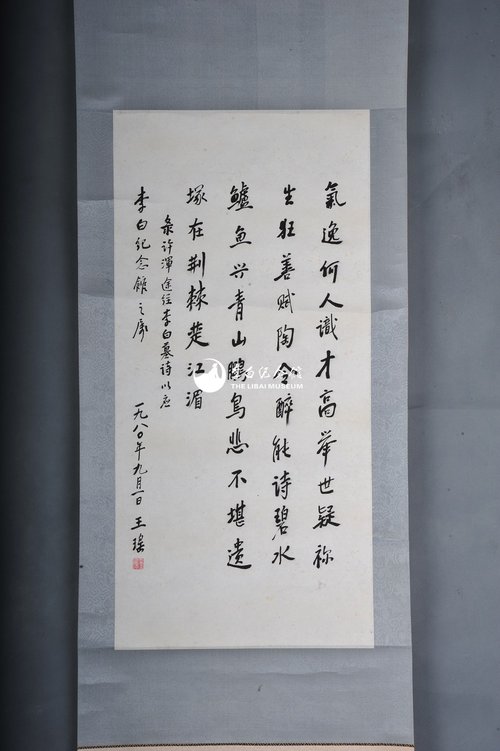 氣逸何人識才高举世疑祢
生狂善赋陶令醉能诗碧水
鱸鱼兴青山鵩鸟悲不堪遗
塚在荆棘楚江湄
录许渾途经李白墓诗以应
李白纪念館之属 一九八〇年九月一日 王瑶
李白纪念馆
THE LIBAI MUSEUM